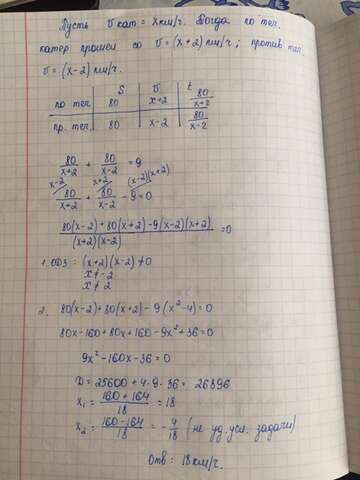 Пусть V кат = x км/ч. Тогда по теч.
катер прошел со V = (x+2) км/ч; против теч.
V = (x-2) км/ч.
S V t
по теч. 80 x+2 80/(x+2)
пр. теч. 80 x-2 80/(x-2)
80/(x+2) + 80/(x-2) = 9
x-2 x+2 (x-2)(x+2)
80/(x+2) + 80/(x-2) - 9 = 0
(80(x-2)+80(x+2)-9(x-2)(x+2))/((x+2)(x-2)) = 0
1. ОДЗ: (x+2)(x-2)≠0
x≠-2
x≠2
2. 80(x-2)+80(x+2)-9(x²-4)=0
80x-160+80x+160-9x²+36=0
9x²-160x-36=0
D=25600+4·9·36=26896
x₁=(160+164)/18=18
x₂=(160-164)/18=-4/18 (не уд. усл. задачи)
Отв: 18км/ч.